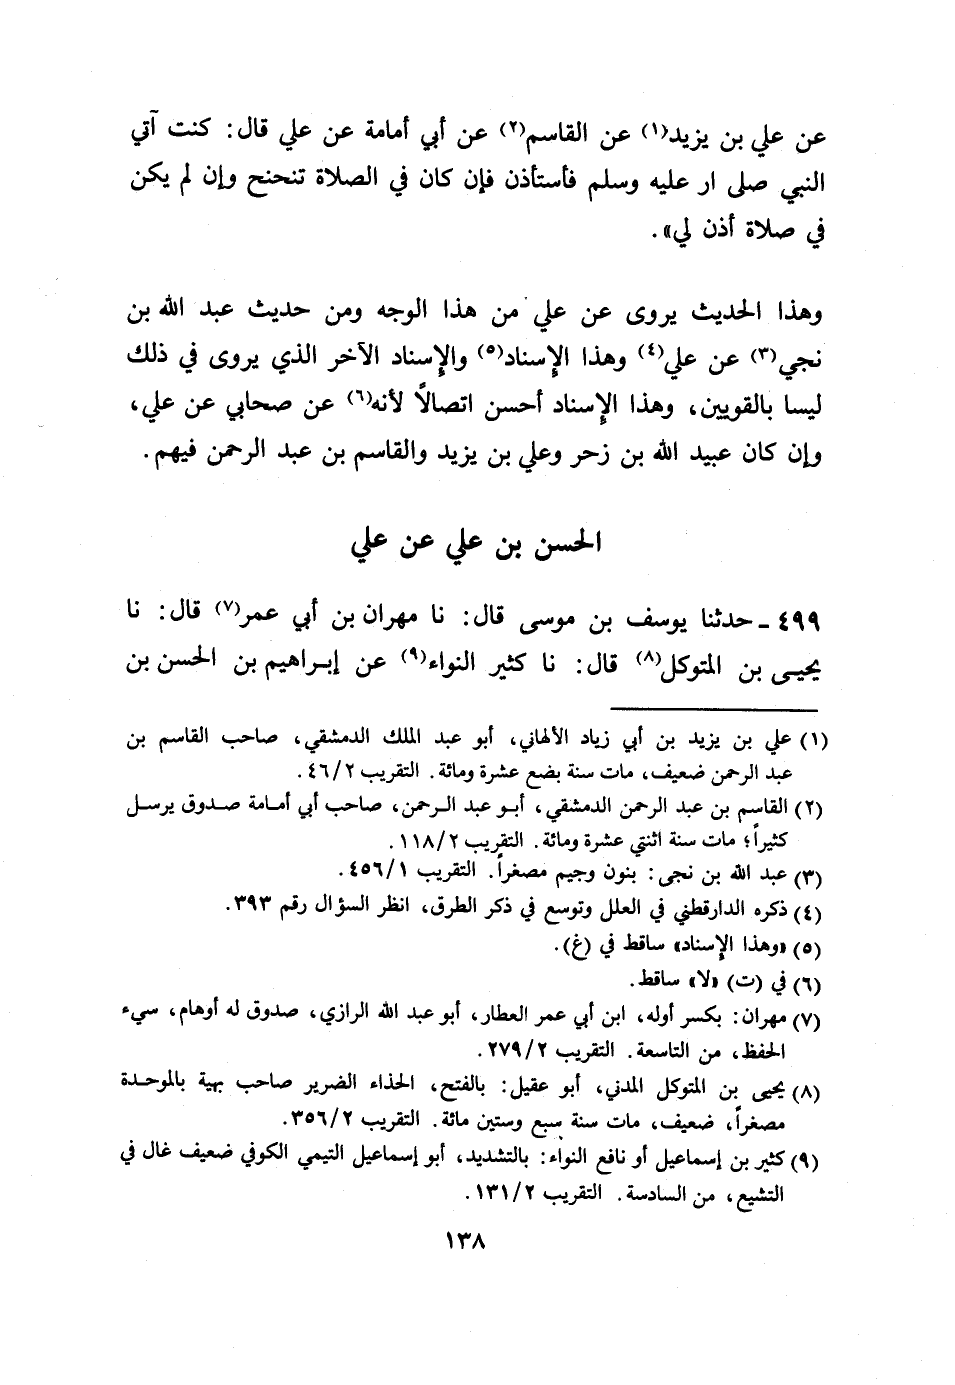 عن علي بن يزيد(١) عن القاسم(٢) عن أبي أمامة عن علي قال: كنت آتي
النبي صلى ار عليه وسلم فأستأذن فإن كان في الصلاة تنحنح وإن لم يكن
في صلاة أذن لي».
وهذا الحديث يروى عن علي من هذا الوجه ومن حديث عبد الله بن
نجي(٣) عن علي(٤) وهذا الإسناد(٥) والإسناد الآخر الذي يروى في ذلك
ليسا بالقويين، وهذا الإسناد أحسن اتصالاً لأنه(٦) عن صحابي عن علي،
وإن كان عبيد الله بن زحر وعلي بن يزيد والقاسم بن عبد الرحمن فيهم.
الحسن بن علي عن علي
٤٩٩ ـ حدثنا يوسف بن موسى قال: نا مهران بن أبي عمر(٧) قال: نا
يحيى بن المتوكل(٨) قال: نا كثير النواء(٩) عن إبراهيم بن الحسن بن
(١) علي بن يزيد بن أبي زياد الألهاني، أبو عبد الملك الدمشقي، صاحب القاسم بن
عبد الرحمن ضعيف، مات سنة بضع عشرة ومائة. التقريب ٤٦/٢.
(٢) القاسم بن عبد الرحمن الدمشقي، أبو عبد الرحمن، صاحب أبي أمامة صدوق يرسل
كثيراً؛ مات سنة اثنتي عشرة ومائة. التقريب ١١٨/٢.
(٣) عبد الله بن نجى: بنون وجيم مصغراً. التقريب ٤٥٦/١.
(٤) ذكره الدارقطني في العلل وتوسع في ذكر الطرق، انظر السؤال رقم ٣٩٣.
(٥) «وهذا الإسناد» ساقط في (غ).
(٦) في (ت) «لا» ساقط.
(٧) مهران: بكسر أوله، ابن أبي عمر العطار، أبو عبد الله الرازي، صدوق له أوهام، سيء
الحفظ، من التاسعة. التقريب ٢٧٩/٢.
(٨) يحيى بن المتوكل المدني، أبو عقيل: بالفتح، الحذاء الضرير صاحب بهية بالموحدة
مصغراً، ضعيف، مات سنة سبع وستين مائة. التقريب ٣٥٦/٢.
(٩) كثير بن إسماعيل أو نافع النواء: بالتشديد، أبو إسماعيل التيمي الكوفي ضعيف غال في
التشيع، من السادسة. التقريب ١٣١/٢.
١٣٨